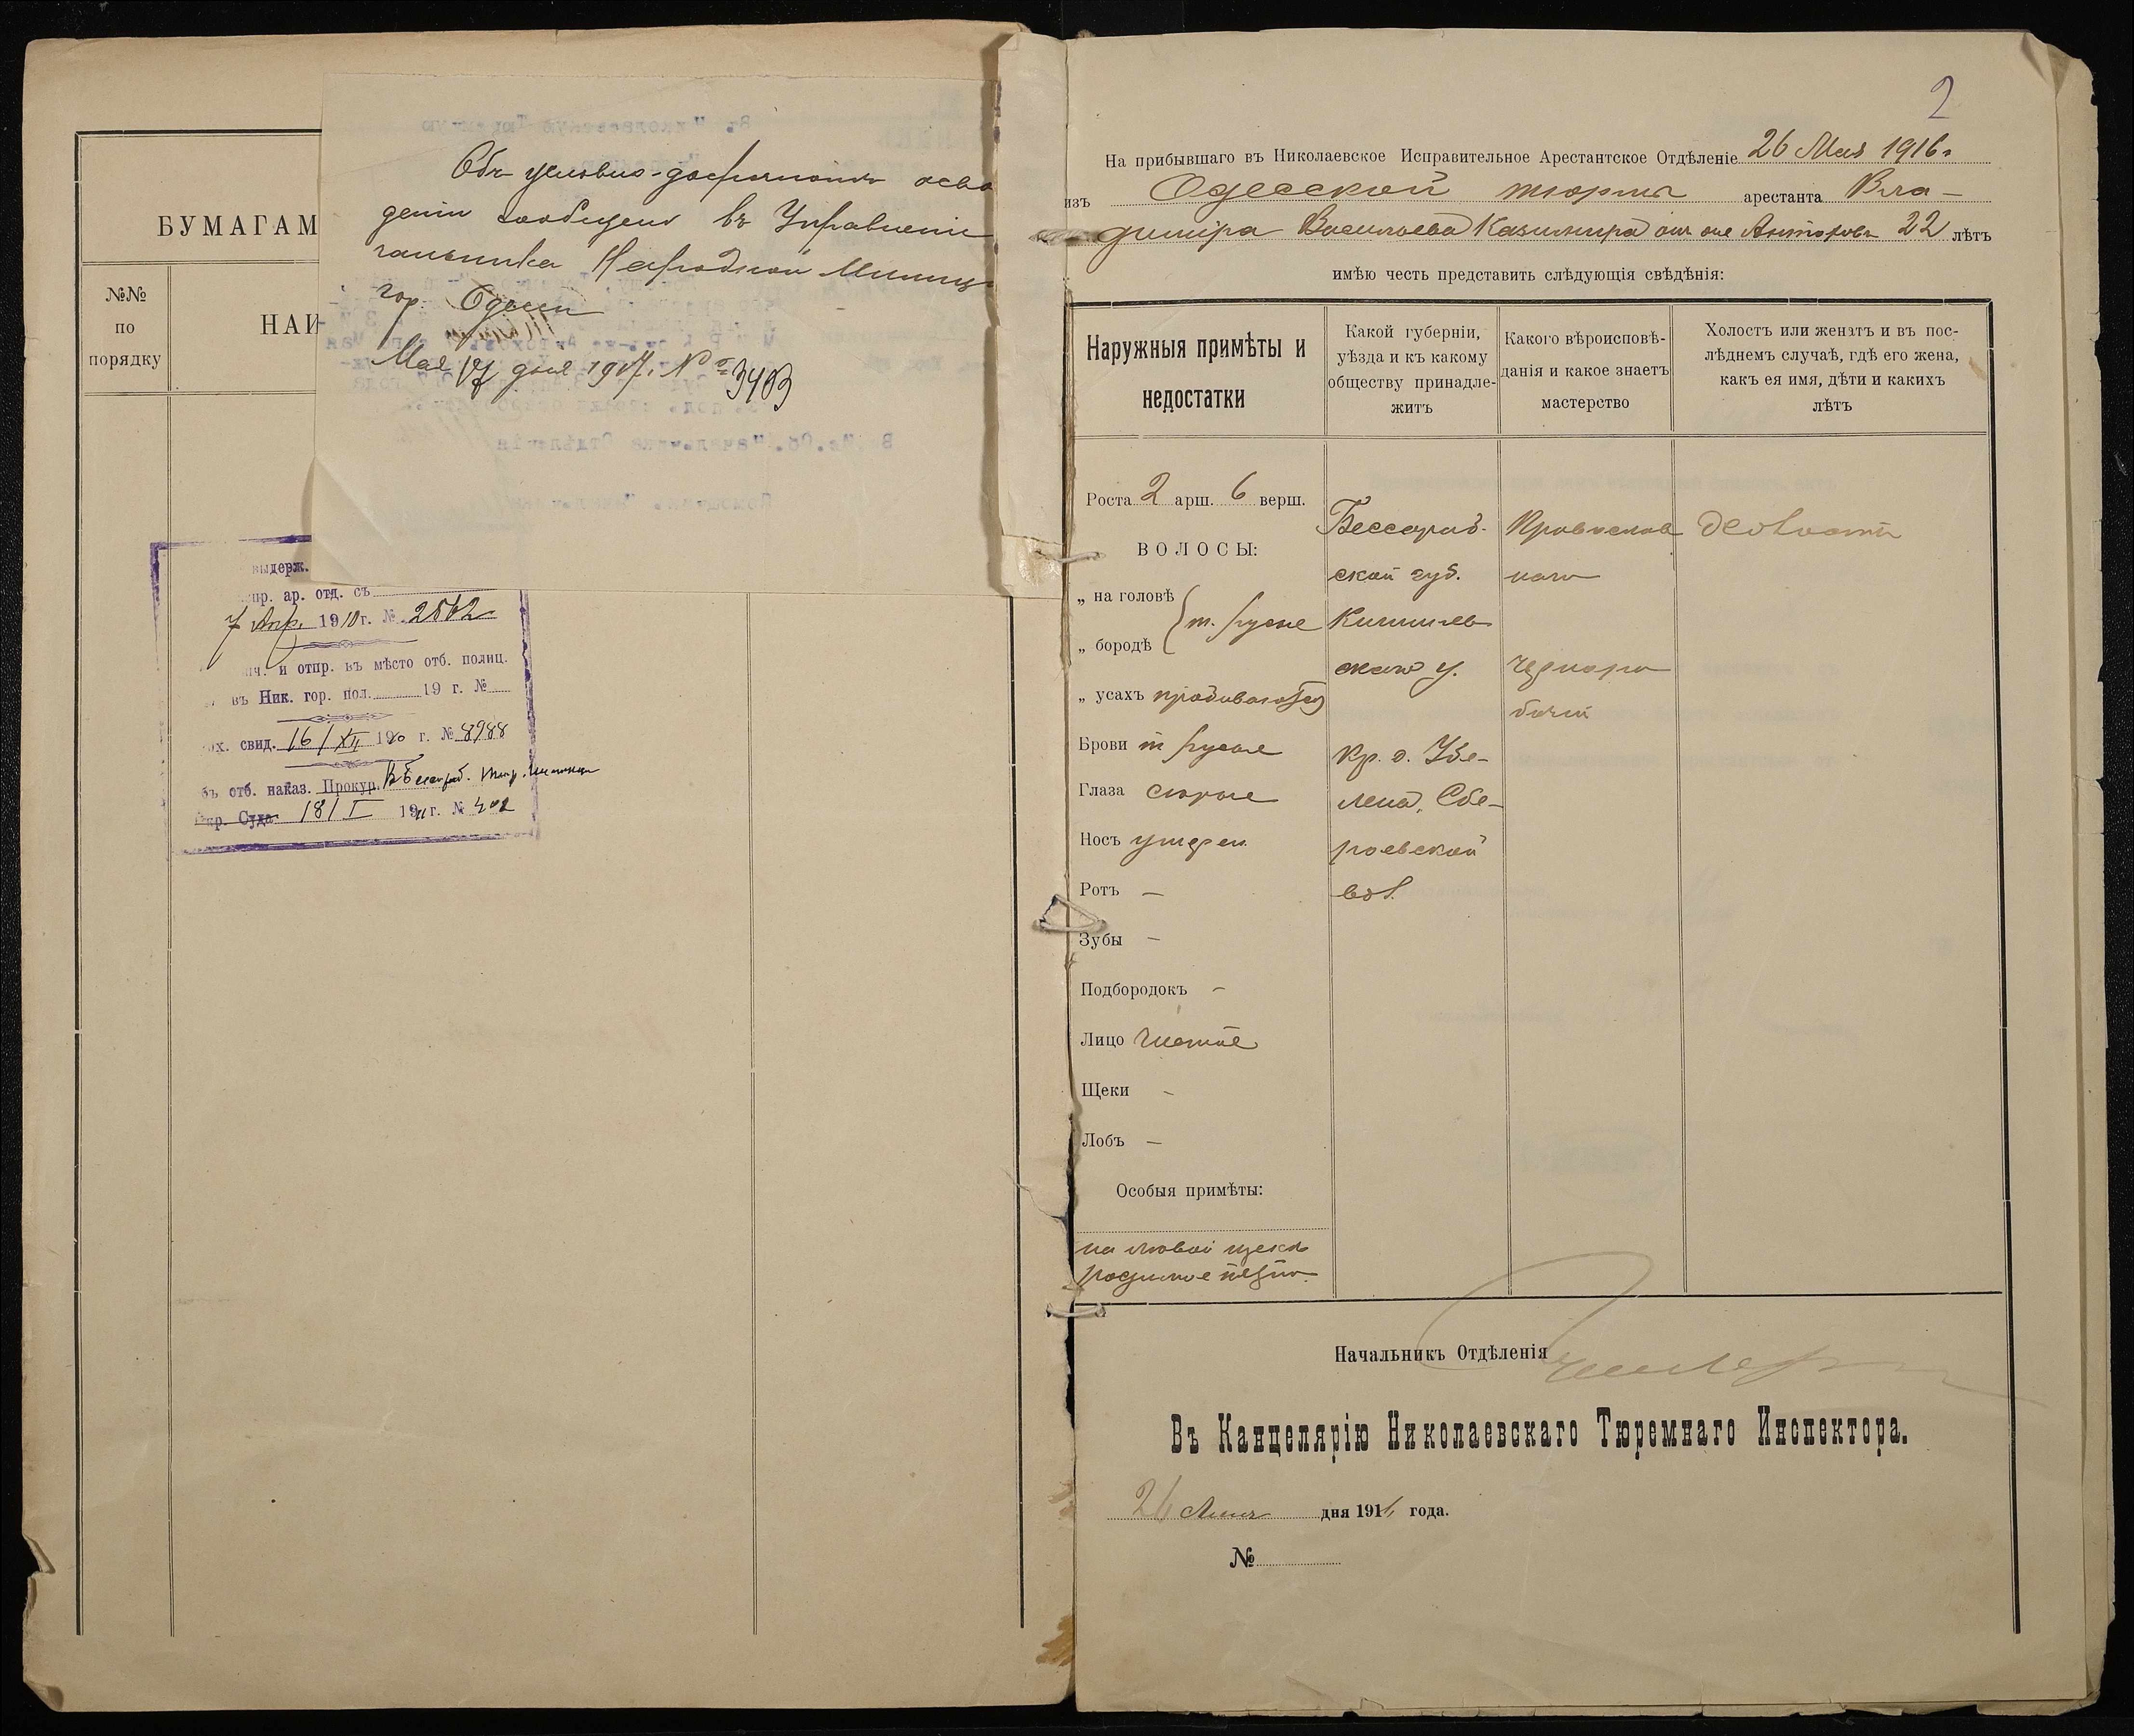 БУМАГАМ
№№
по
порядку
НАИ
Объ условно-досрочномъ осво
деніи сообщено въ Управленіе
чальника Народной Милиц
гор. Одессы
Мая 17 дня 1917 г. № 3403
выдерж.
пр. ар. отд. съ
7 Апр. 1910 г. № 2562
ич. и отпр. въ мѣсто отб. полиц.
въ Ник. гор. пол. 19 г. №
ох. свид. 16/XII 190 г. № 8988
бъ отб. наказ. Прокур.
кр. Суда 18/I 1911 г. № 402
2
На прибывшаго въ Николаевское Исправительное Арестантское Отдѣленіе 26 Мая 1916 г.
изъ Одесской тюрьмы арестанта Вла-
димира Васильева Казимира онъ же Антоновъ 22 лѣтъ
имѣю честь представить слѣдующія свѣдѣнія:
Наружныя примѣты и
недостатки
Какой губерніи,
уѣзда и къ какому
обществу принадле-
житъ
Какого вѣроисповѣ-
данія и какое знаетъ
мастерство
Холостъ или женатъ и въ пос-
лѣднемъ случаѣ, гдѣ его жена,
какъ ея имя, дѣти и какихъ
лѣтъ
Роста 2 арш. 6 верш.
ВОЛОСЫ:
„ на головѣ
т. русые
„ бородѣ
„ усахъ пробиваются
Брови т русые
Глаза сѣрые
Носъ умѣрен.
Ротъ —
Зубы —
Подбородокъ —
Лицо чистое
Щеки —
Лобъ —
Особыя примѣты:
на лѣвой щекѣ
родимое пятно.
Бессараб-
ской губ.
Кишинев
скаго у.
кр. с.
вол.
Православ
наго
чернора
бочій
холостъ
Начальникъ Отдѣленія
Въ Канцелярію Николаевскаго Тюремнаго Инспектора.
26 Мая дня 1916 года.
№